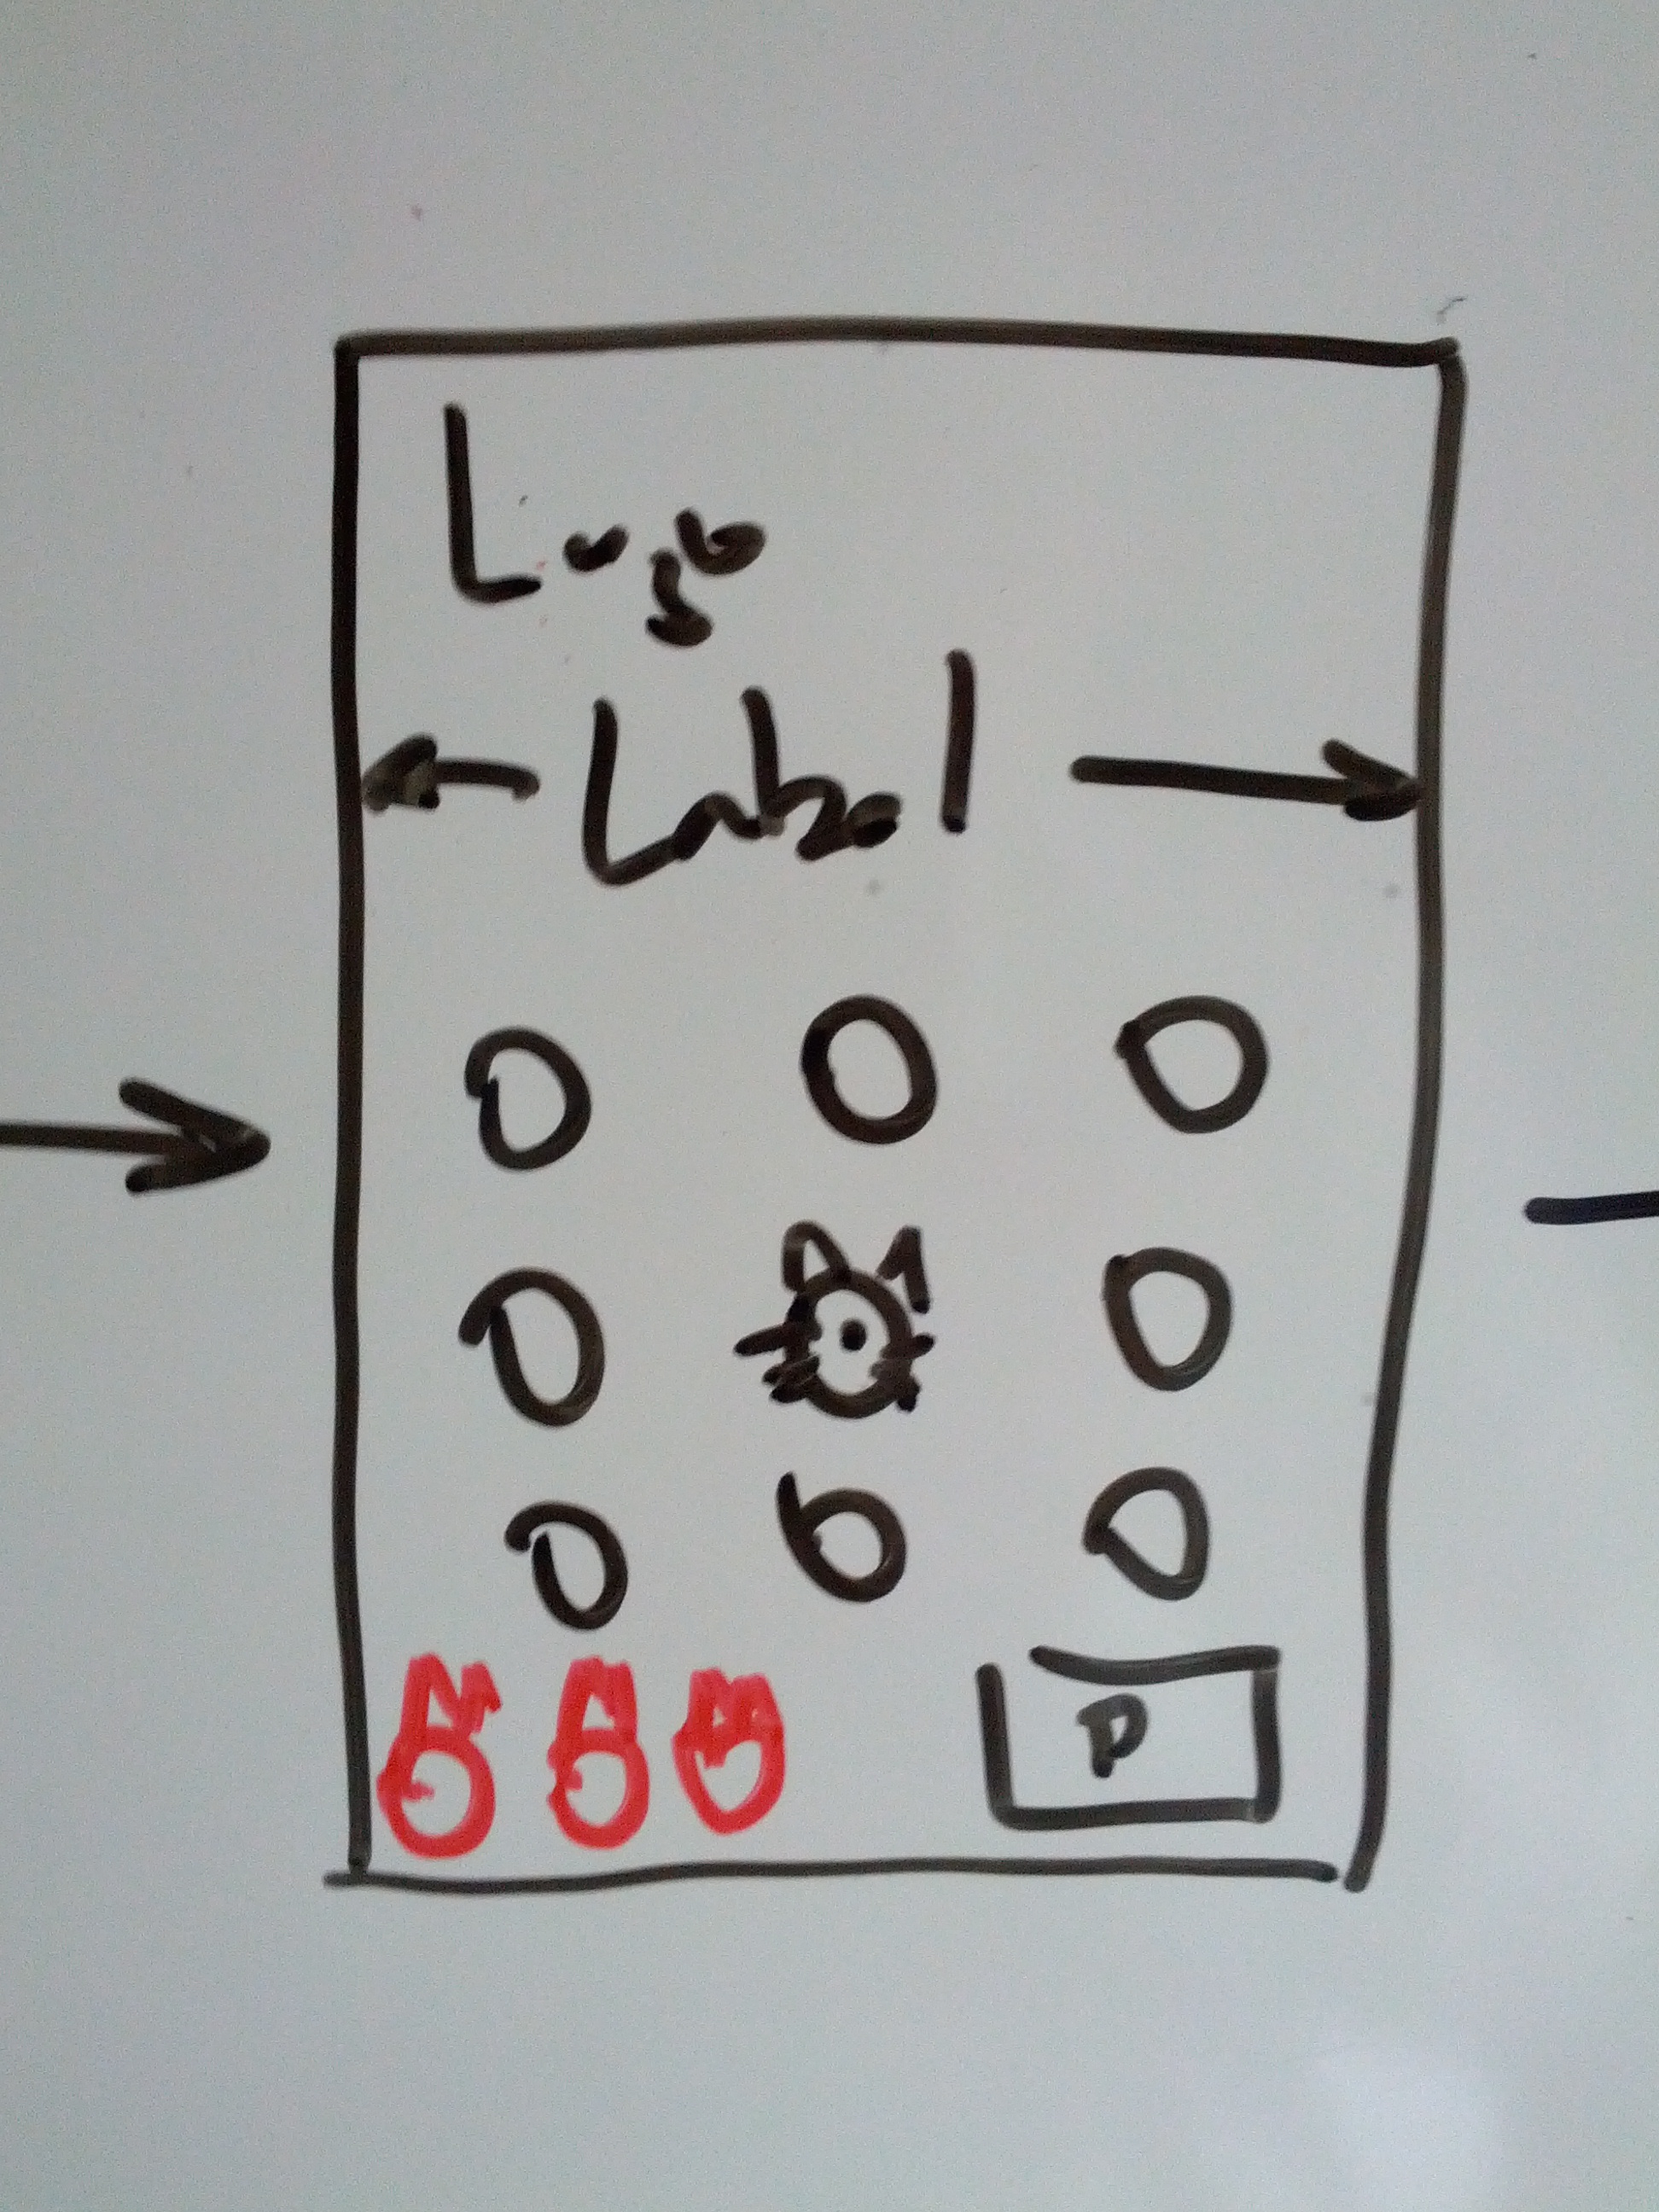 Logo
Label
P